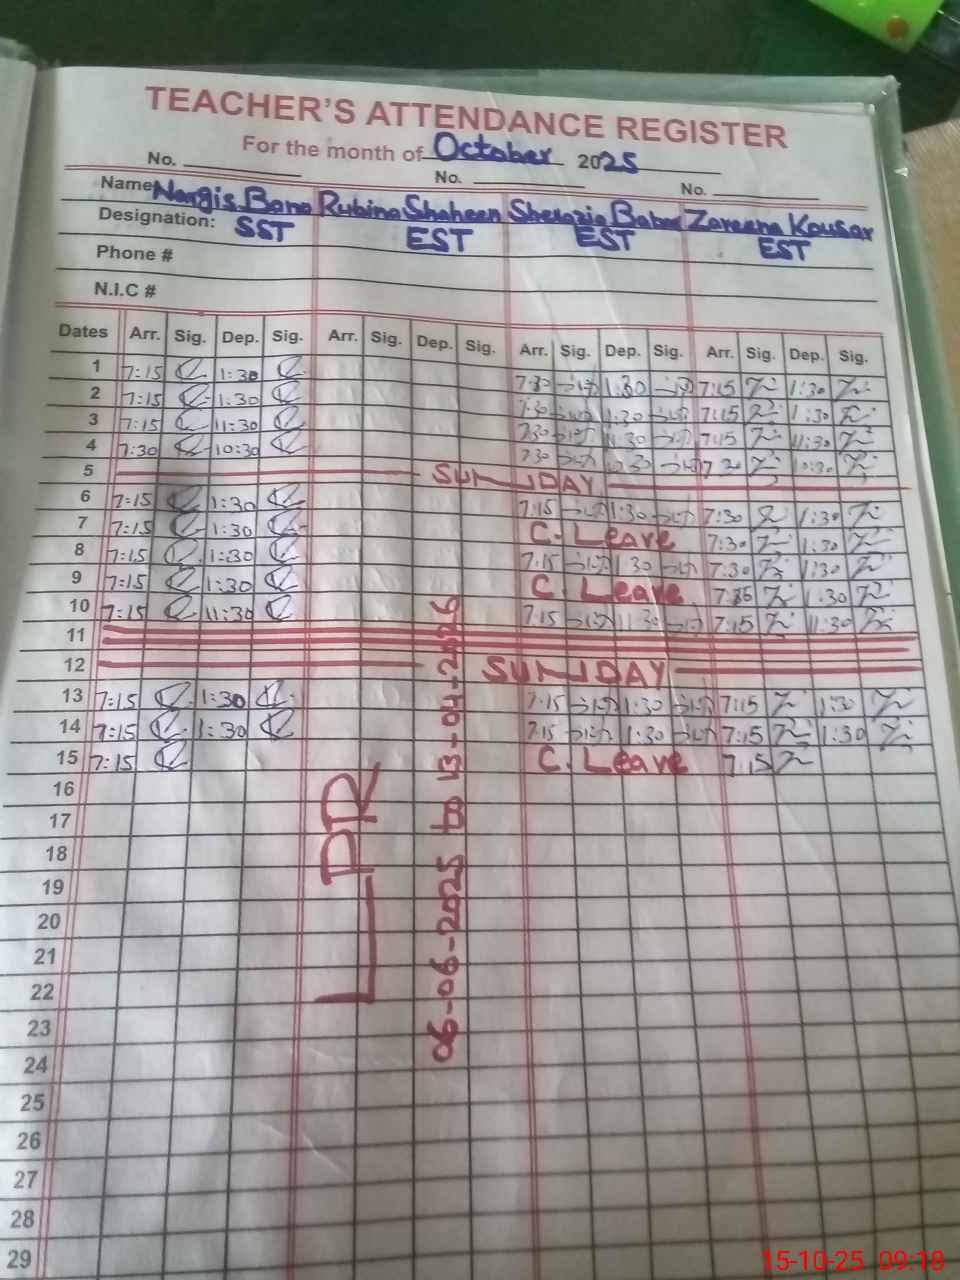 TEACHER'S ATTENDANCE REGISTER
For the month of October 2025
No. No. No.
Name Nargis Bano Rubina Shaheen Zareena Kousar
Designation: SST EST EST EST
Phone #
N.I.C #
Dates Arr. Sig. Dep. Sig. Arr. Sig. Dep. Sig. Arr. Sig. Dep. Sig. Arr. Sig. Dep. Sig.
1 7:15 1:30 7:30 1:30 7:15 1:30
2 7:15 1:30 7:30 1:30 7:15 1:30
3 7:15 11:30 7:30 11:30 7:15 11:30
4 7:30 10:30 7:30 10:30 7:30 10:30
5 SUNDAY
6 7:15 1:30 7:15 1:30 7:30 1:30
7 7:15 1:30 C. Leave 7:30 1:30
8 7:15 1:30 7:15 1:30 7:30 1:30
9 7:15 1:30 C. Leave 1:30
10 7:15 11:30 7:15 11:30 7:15 11:30
11
12 SUNDAY
13 7:15 1:30 7:15 1:30 7:15 1:30
14 7:15 1:30 7:15 1:30 7:15 1:30
15 7:15 C. Leave 7:15
16
17
18
19
20
21
22
23
24
25
26
27
28
29
LPR
06-06-2025 to 13-04-2026
15-10-25 09:18